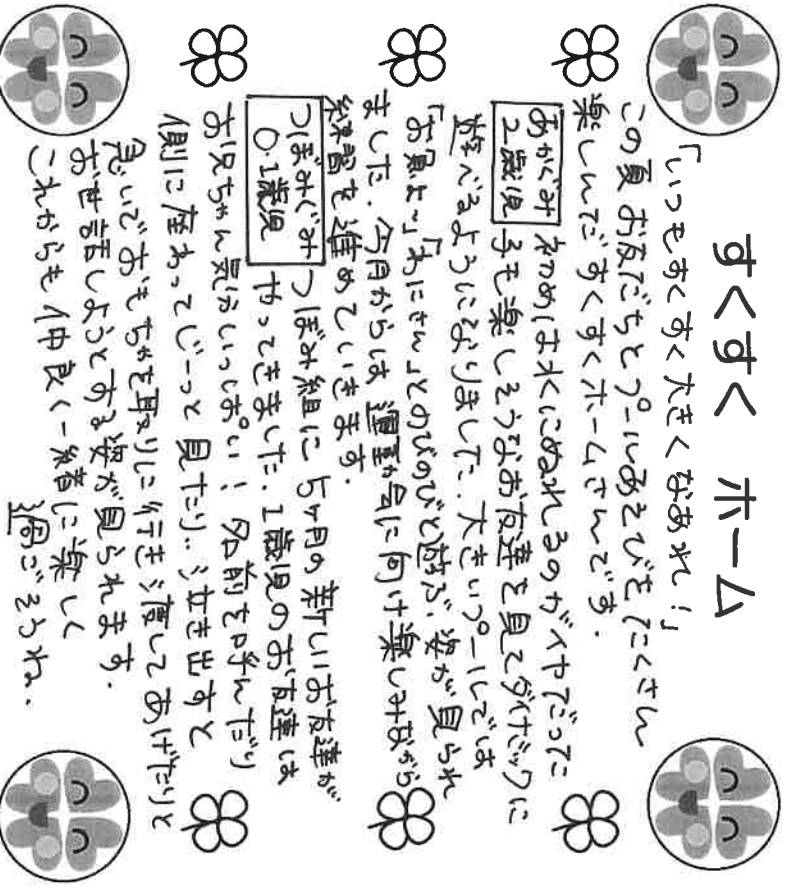 すくすく ホーム
「いつもすくすく大きくなあれ！」
この夏 お友だちとプールあそびをたくさん
楽しんだすくすくホームさんです。
あかぐみ
2歳児
初めは水にぬれるのがイヤだった
子も楽しそうなお友達を見てダイナミックに
遊べるようになりました。大きいプールでは
「お魚よ〜」「わにさん」とのびのびと遊ぶ姿が見られ
ました。今月からは運動会に向け楽しみながら
練習を進めていきます。
つぼみぐみ
0.1歳児
つぼみ組に5ヶ月の新しいお友達が
やってきました。1歳児のお友達は
お兄ちゃん気分いっぱい！名前を呼んだり
側に座ってじーっと見たり…泣き出すと
急いでおもちゃを取りに行き渡してあげたりと
お世話しようとする姿が見られます。
これからも仲良く一緒に楽しく
過ごそうね。